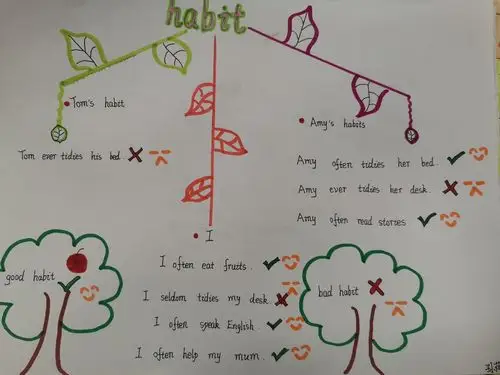 habit
Tom's habit
Tom ever tidies his bed.
Amy's habits
Amy often tidies her bed.
Amy ever tidies her desk.
Amy often read stories
I
I often eat fruits.
I seldom tidies my desk.
I often speak English.
I often help my mum.
good habit
bad habit